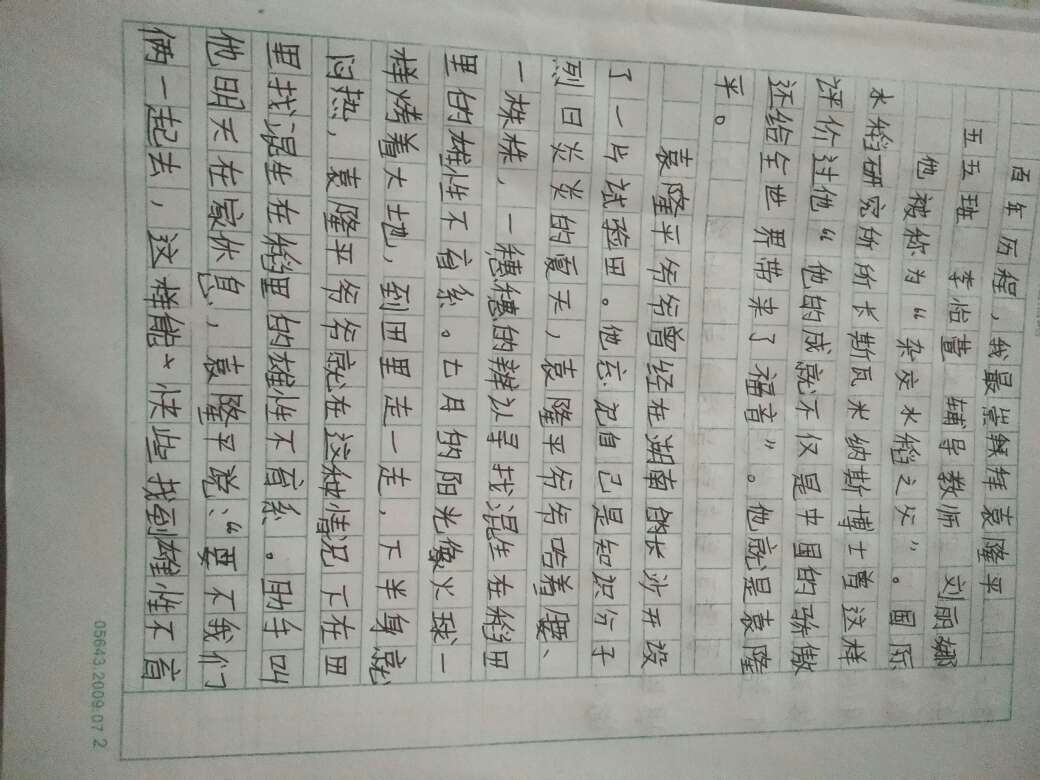 百年历程，我最崇拜袁隆平
五五班 李怡萱 辅导教师 刘丽娜
他被称为“杂交水稻之父”。国际
水稻研究所所长斯瓦米纳斯博士曾这样
评价过他“他的成就不仅是中国的骄傲
还给全世界带来了福音”。他就是袁隆
平。
袁隆平爷爷曾经在湖南的长沙开设
了一片试验田。他忘记自己是知识分子
烈日炎炎的夏天，袁隆平爷爷弯着腰、
一株株，一穗穗的辨认寻找混生在稻田
里的雄性不育系。七月的阳光像火球一
样烤着大地，到田里走一走，下半身就
闷热，袁隆平爷爷就在这种情况下在田
里找混生在稻里的雄性不育系。助手叫
他明天在家休息，袁隆平说：“要不我们
俩一起去，这样能快些找到雄性不育
05643.2009.07 2